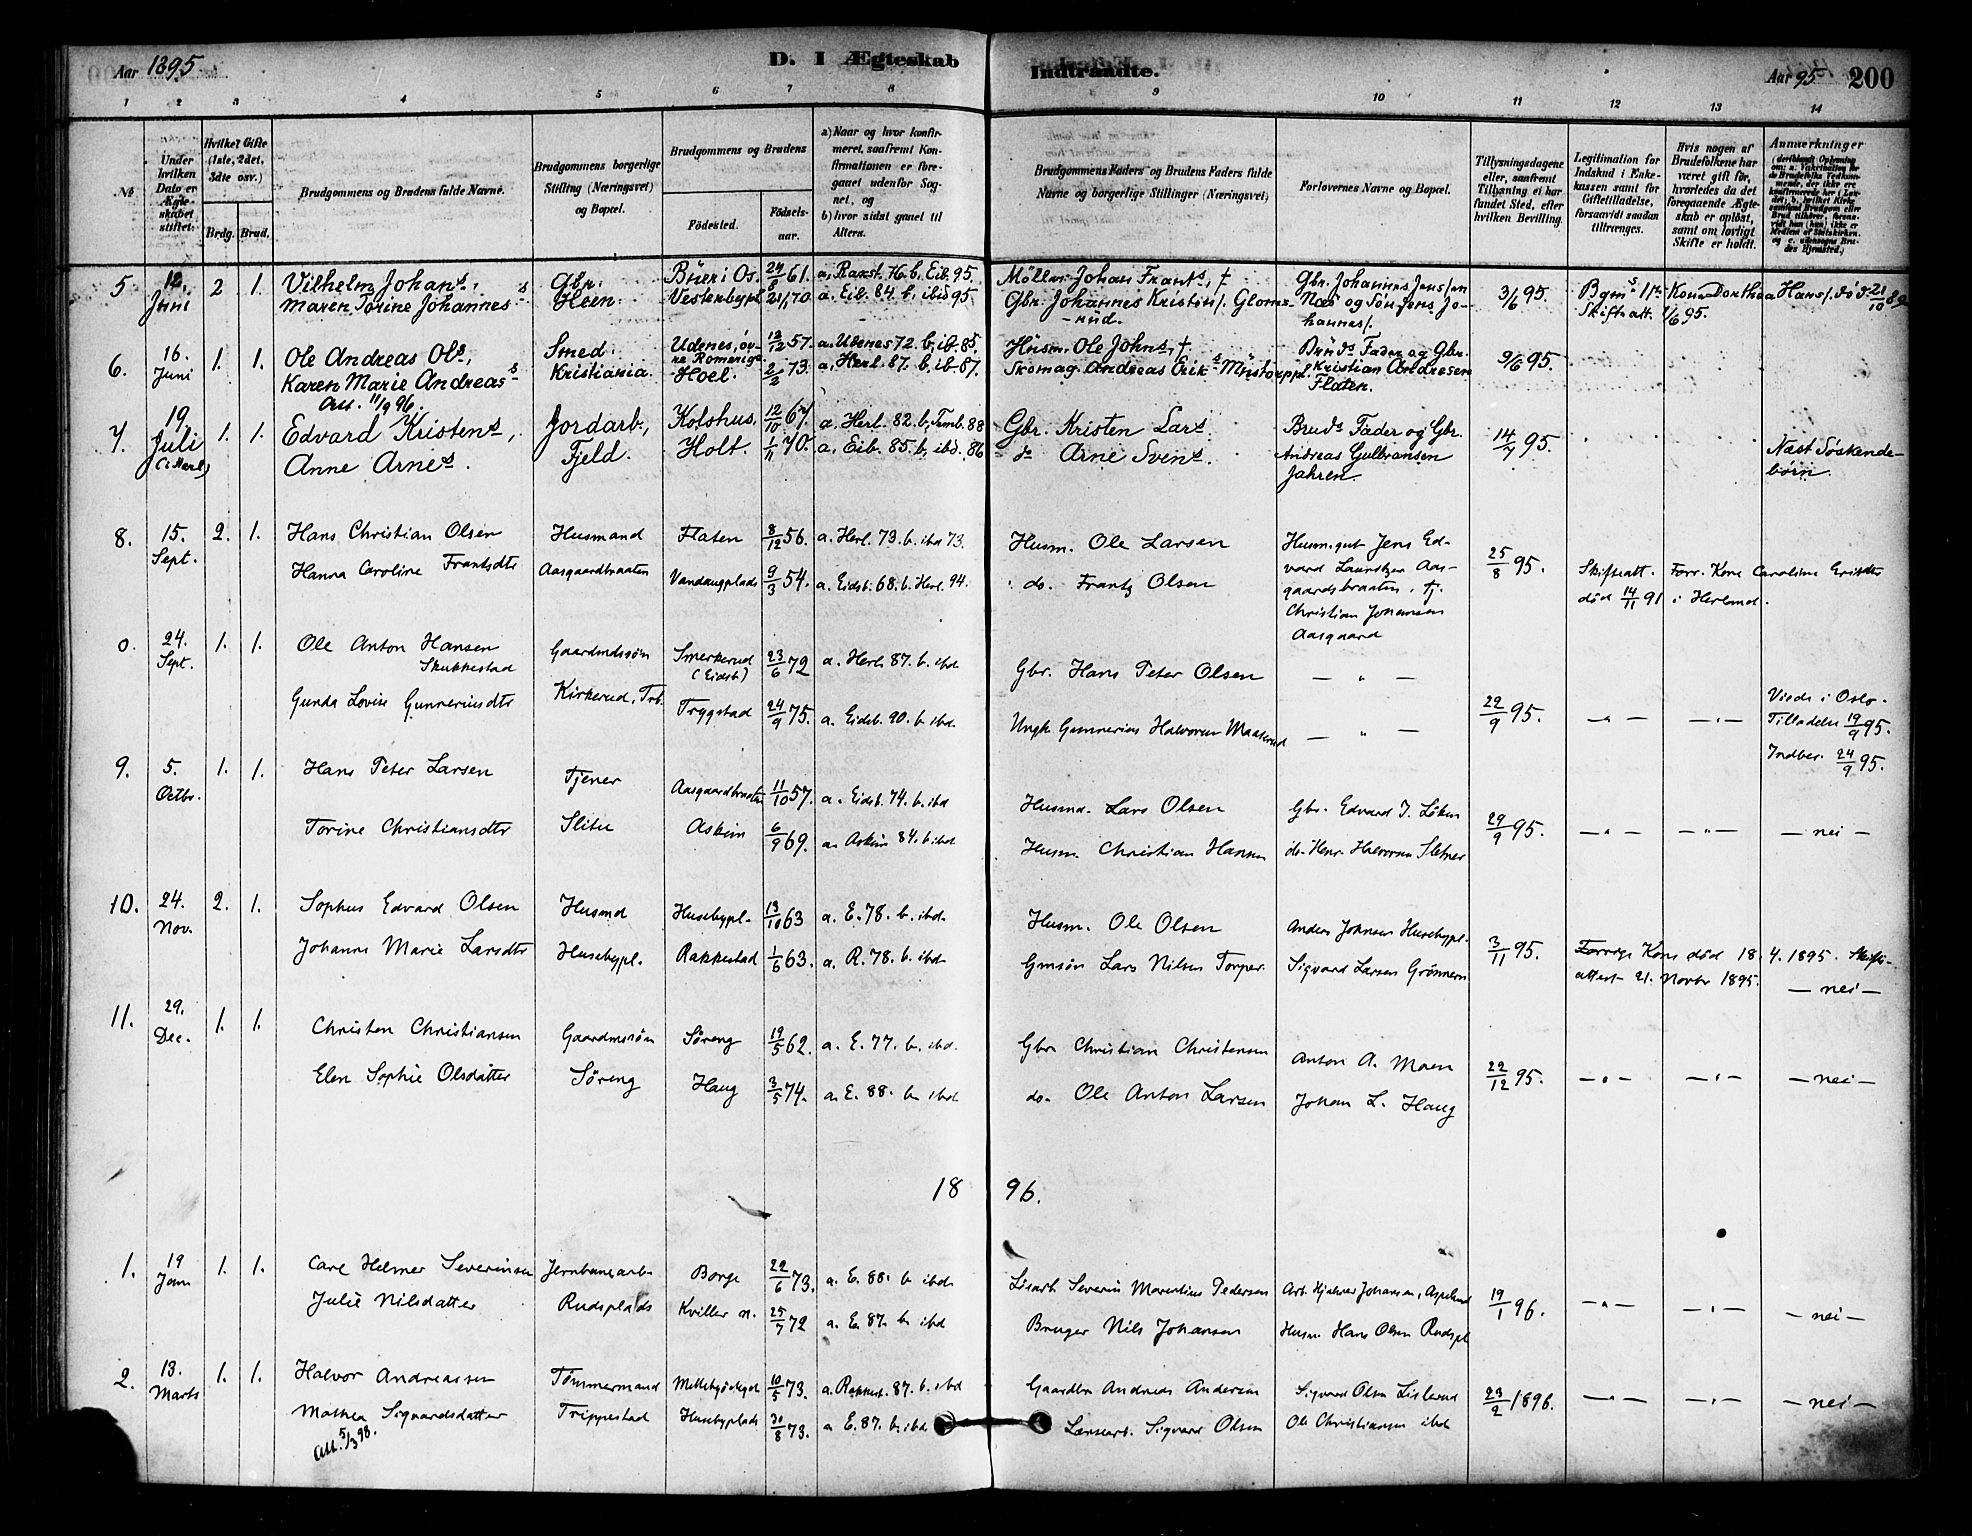 Aar 1895.
D. I Ægteskab
Indtraadte.
Aar 95
200
1 2 3 4 5 6 7 8 9 10 11 12 13 14
No
Under hvilken Dato er Ægteskabet stiftet.
Hvilket Gifte (1ste, 2det, 3die osv.)
Brdg. Brud.
Brudgommens og Brudens fulde Navne.
Brudgommens borgerlige Stilling (Næringsvei) og Bopæl.
Brudgommens og Brudens
Fødested.
Fødselsaar.
a) Naar og hvor konfirmeret, saafremt Konfirmationen er foregaaet udenfor Sognet, og
b) hvor sidst gaaet til Alters.
Brudgommens Faders og Brudens Faders fulde Navne og borgerlige Stillinger (Næringsvei)
Forlovernes Navne og Bopæl.
Tillysningsdagene eller, saafremt Tillysning ei har fundet Sted, efter hvilken Bevilling.
Legitimation for Indskud i Enkekassen samt for Giftetilladelse, forsaavidt saadan tiltrænges.
Hvis nogen af Brudefolkene har været gift før, hvorledes da det foregaaende Ægteskab er opløst, samt om lovligt Skifte er holdt.
Anmærkninger
5 12. Juni 2 1. Vilhelm Johans. Gbr. Büer i Os. 24/8 61. a. Raxst. H. b. Eib. 95. Møller Johan Frants. † Gbr. Johannes Jensen 3/6 95.
Maren Torine Johannes s Heen. Vestenbypl. 21/1 70 a. Eib. 84. b. ibid 95. Gbr. Johannes Kristins. Glomsrud. Næs og Søn Jens Johannes. Skifteatt. 1/6 95. Kona Dorthea Hans. død 21/10 89
6. 16. Juni 1. 1. Ole Andreas Ols. Smed. Udenes, øvre Romerige 12/12 57. a. Udenes 72. b. ib. 85. Husm. Ole Johns. † Bruds Fader og Gbr. 9/6 95.
Karen Marie Andreas s Kristiania. Hoel. 2/2 73. a. Herl. 87. b. ib. 87. Skomag. Andreas Eriks Kristian Andresen Flaten.
Att. 11/9 96.
7. 19. Juli (i Herl.) 1. 1. Edvard Kristens, Jordarb., Kolshus. 12/10 67. a. Herl. 82. b. Trmb. 88 Gbr. Kristen Lars. Bruds Fader og Gbr. 14/7 95.
Anne Arnes. Fjeld. Holt. 1/11 70. a. Eib. 85. b. ibd. 86 do Arne Svens. Andreas Gulbransen Jahren. Næst Søskendebørn.
8. 15. Sept. 2. 1. Hans Christian Olsen Husmand Flaten 8/12 56. a. Herl. 73. b. ibd 73. Husm. Ole Larsen Husm.gut Jens Edvard Lauritzen Aasgaardsbraaten, tj. 25/8 95.
Hanna Caroline Frantsdtr Aasgaardbraaten Vandaugplads 9/3 54. a. Eidsb. 68. b. Herl. 94. do. Frantz Olsen Christian Johansen Aasgaard Skifteatt. Forr. Kone Caroline Eriksdtr død 14/11 91 i Herland.
0. 24. Sept. 1. 1. Ole Anton Hansen Skukkestad Gaardmdssøn Smerkerud (Eidsb) 23/6 72 a. Herl. 87. b. ibd Gbr. Hans Peter Olsen — " —
Gunda Lovise Gunneriusdtr Kirkerud, Trb. Trygstad 24/9 75. a. Eidsb. 90. b. ibd. Ungk. Gunnerius Halvorsen Maaserud — " — 22/9 95. — " — — " — Viede i Oslo. Tilladelse 19/9 95. Indber. 24/9 95.
9. 5. Octbr. 1. 1. Hans Peter Larsen Tjener Aasgaardbraaten 11/10 57. a. Eidsb. 74. b. ibd Husmd. Lars Olsen Gbr. Edvard J. Løken 29/9 95. — " — — " — — nei —
Torine Christiansdtr Slitu Askim 6/9 69. a. Askim 84. b. ibd Husm. Christian Hansen do. Henr. Halvorsen Sletner
10. 24. Nov. 2. 1. Sophus Edvard Olsen Husmd Husebypl. 13/10 63 a. E. 78. b. ibd. Husm. Ole Olsen Anders Johnsen Husebypl. 3/11 95. Forrige Kone død 18. 4. 1895. Skifteattest 21. Novbr 1895. — nei —
Johanne Marie Larsdtr Husebypl. Rakkestad 1/6 63. a. R. 78. b. ibd. Gmsøn Lars Nilsen Torper. Sigvard Larsen Grønnern
11. 29. Dec. 1. 1. Christen Christiansen Gaardmssøn Søreng 19/5 62. a. E. 77. b. ibd. Gbr. Christian Christensen Anton A. Moen 22/12 95. — " — — " — — nei —
Elen Sophie Olsdatter Søreng Haug 3/5 74. a. E. 88. b. ibd. do. Ole Anton Larsen Johan L. Haug
1896.
1. 19 Jan 1. 1. Carl Helmer Severinsen Jernbanearb. Borge 22/6 73. a. E. 88. b. ibd. Severin Martinius Pedersen Arb. Hjalmar Johansen, Aspelund 19/1 96. — " — — " — — nei —
Julie Nilsdatter Rudsplads Kviller n. 25/7 72 a. E. 87. b. ibd Bruger Nils Johansen Husm. Hans Olsen Rudspl.
2. 13. Marts 1. 1. Halvor Andreassen Tømmermand 10/5 73. a. Rakkest. 87. b. ibd Gaardbr. Andreas Andersen Sigvard Olsen Lislerud 23/2 1896. — " — — " — — nei —
Mathea Sigvardsdatter Trippestad Husebyplads 30/8 73. a. E. 87. b. ibd Sigvard Olsen Ole Christiansen ibd
Att. 5/3 98.